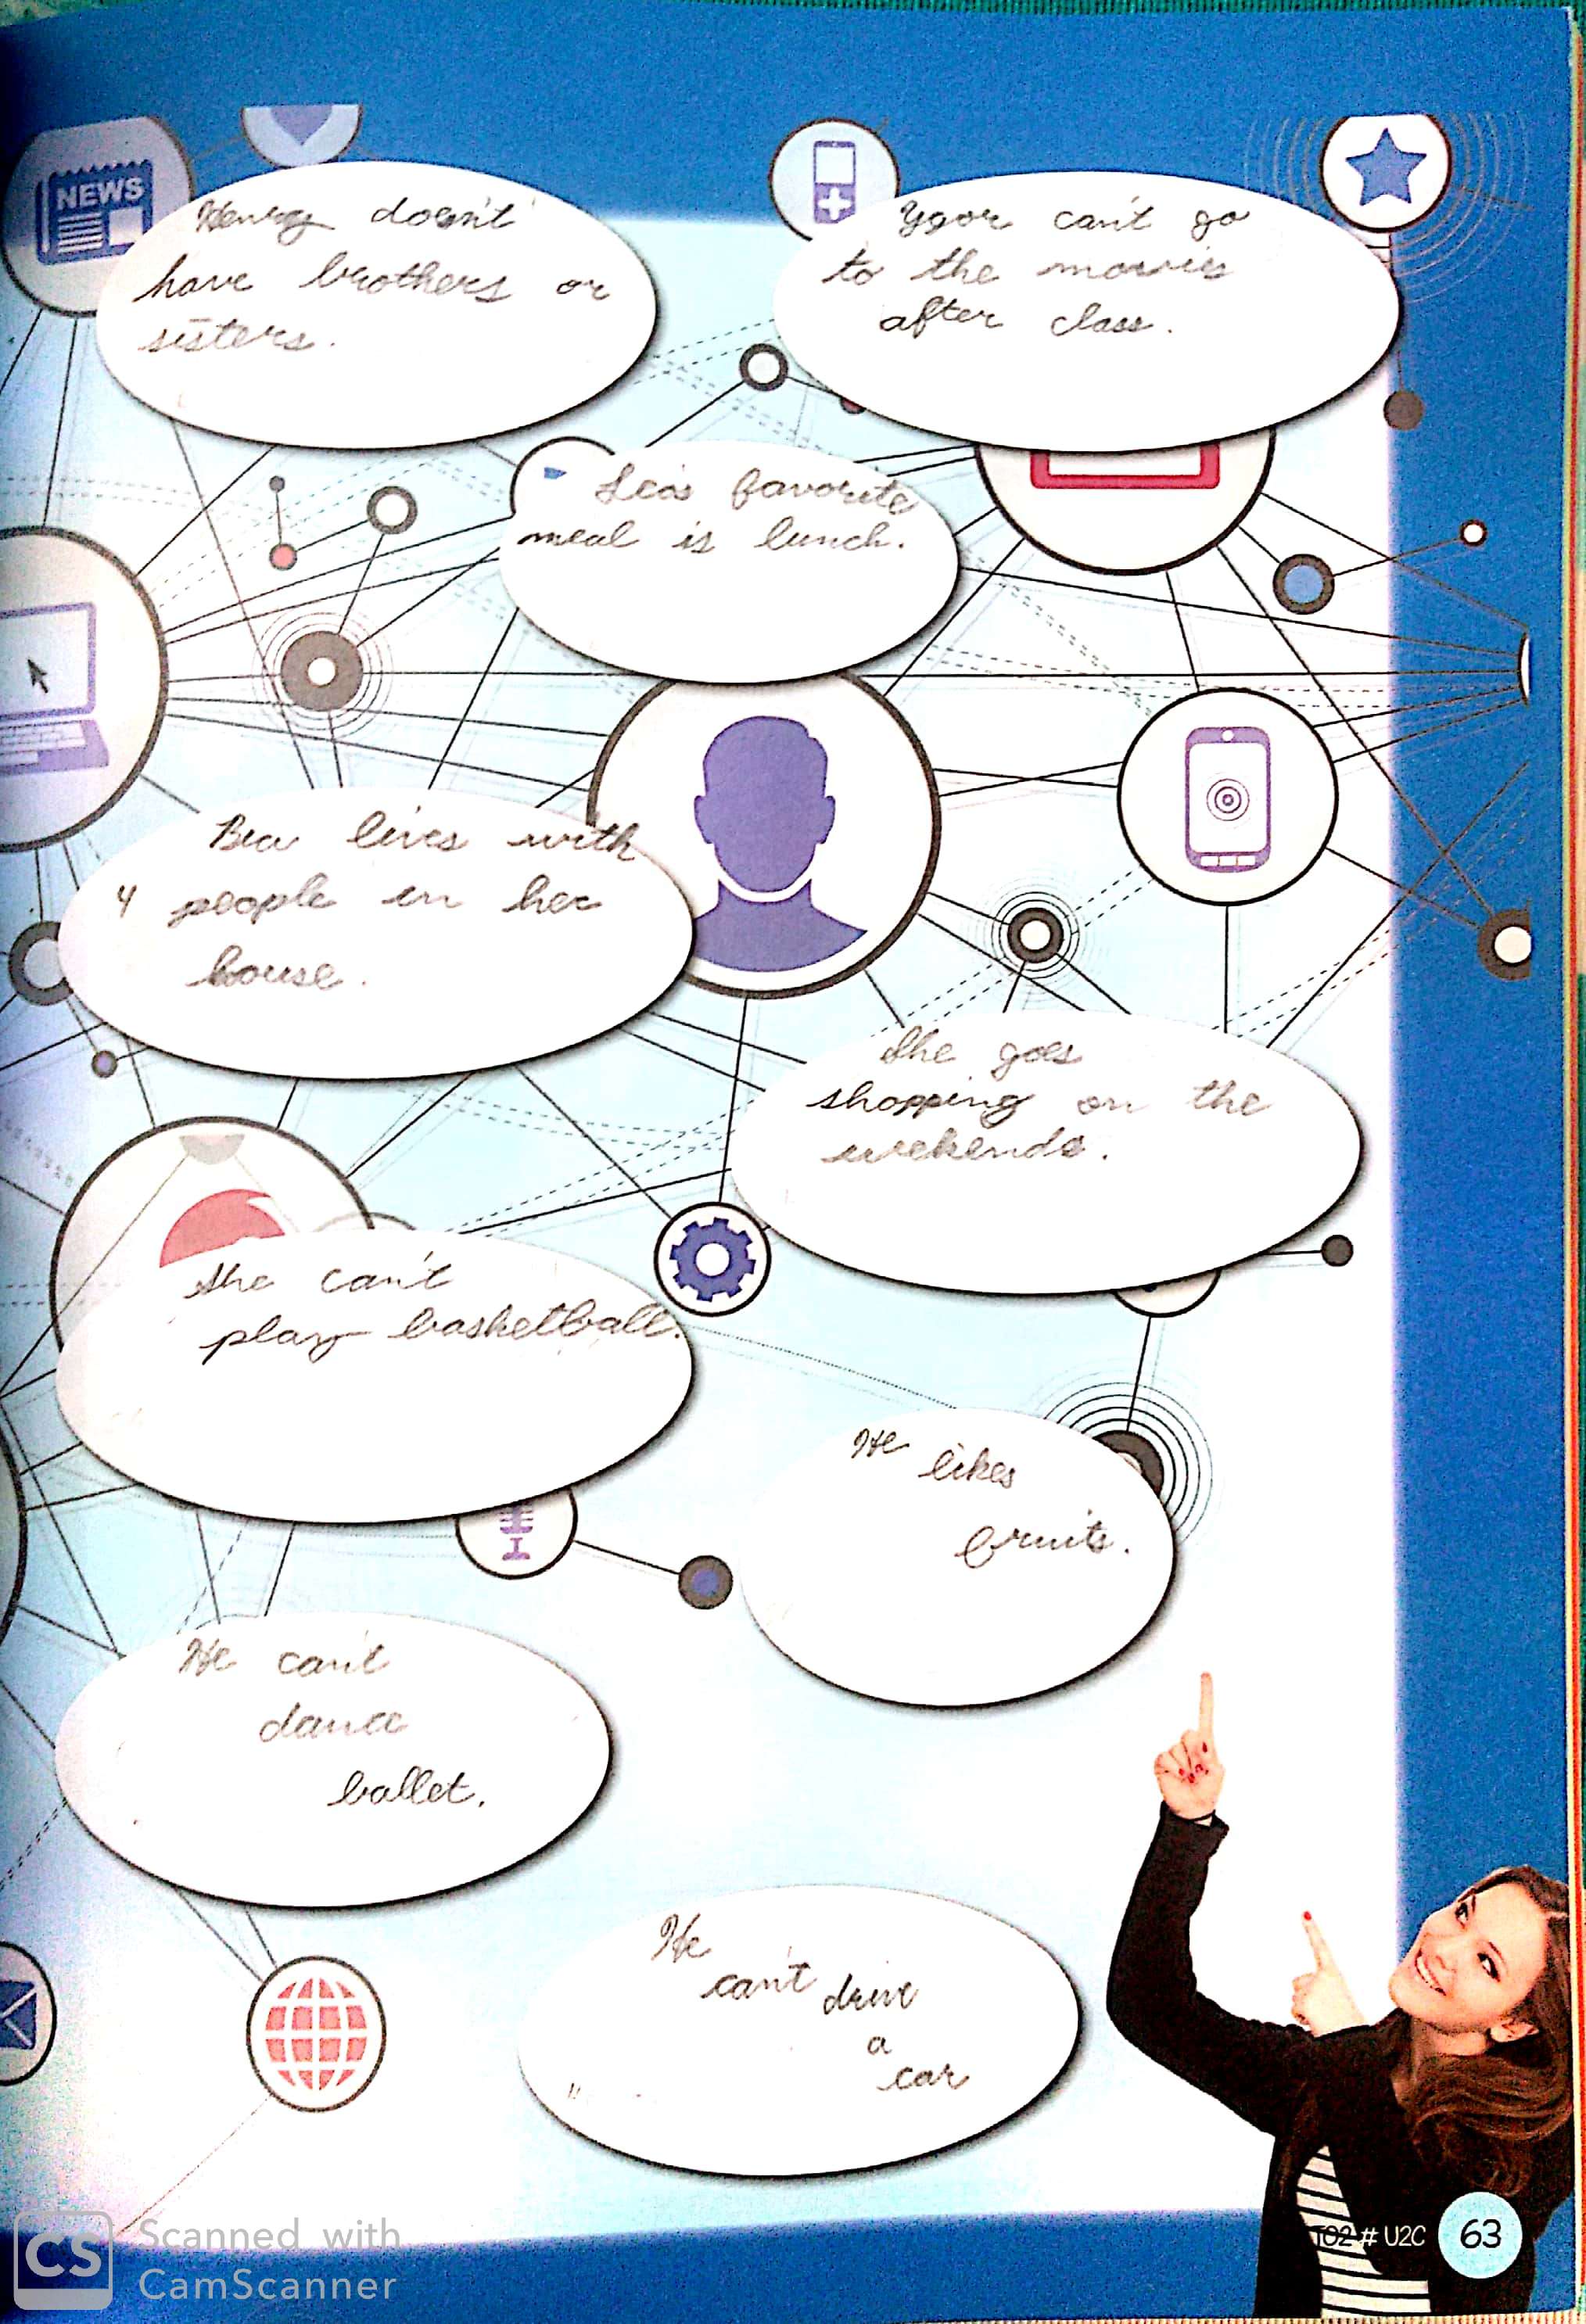 NEWS
Henry doesn't
have brothers or
sisters.
Ygor can't go
to the movies
after class.
Leo's favorite
meal is lunch.
Bia lives with
4 people in her
house.
She goes
shopping on the
weekends.
She can't
play basketball.
He likes
fruits.
He can't
dance
ballet.
He
can't drive
a
car
T02 # U2C 63
CS Scanned with
CamScanner